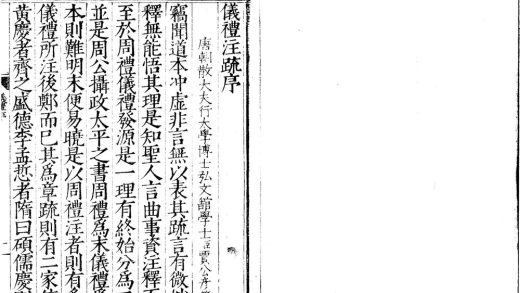 儀禮注疏序
唐朝散大夫行大學博士弘文館學士臣賈公彥
竊聞道本沖虛非言無以表其疏言有微
釋無能悟其理是知聖人言曲事資注釋
至於周禮儀禮發源是一理有終始分為
並是周公攝政太平之書周禮為末儀禮
本則難明末便易曉是以周禮注者則有
儀禮所注後鄭而已其為章疏則有二家
黃慶者齊之盛德李孟悊者隋曰碩儒慶